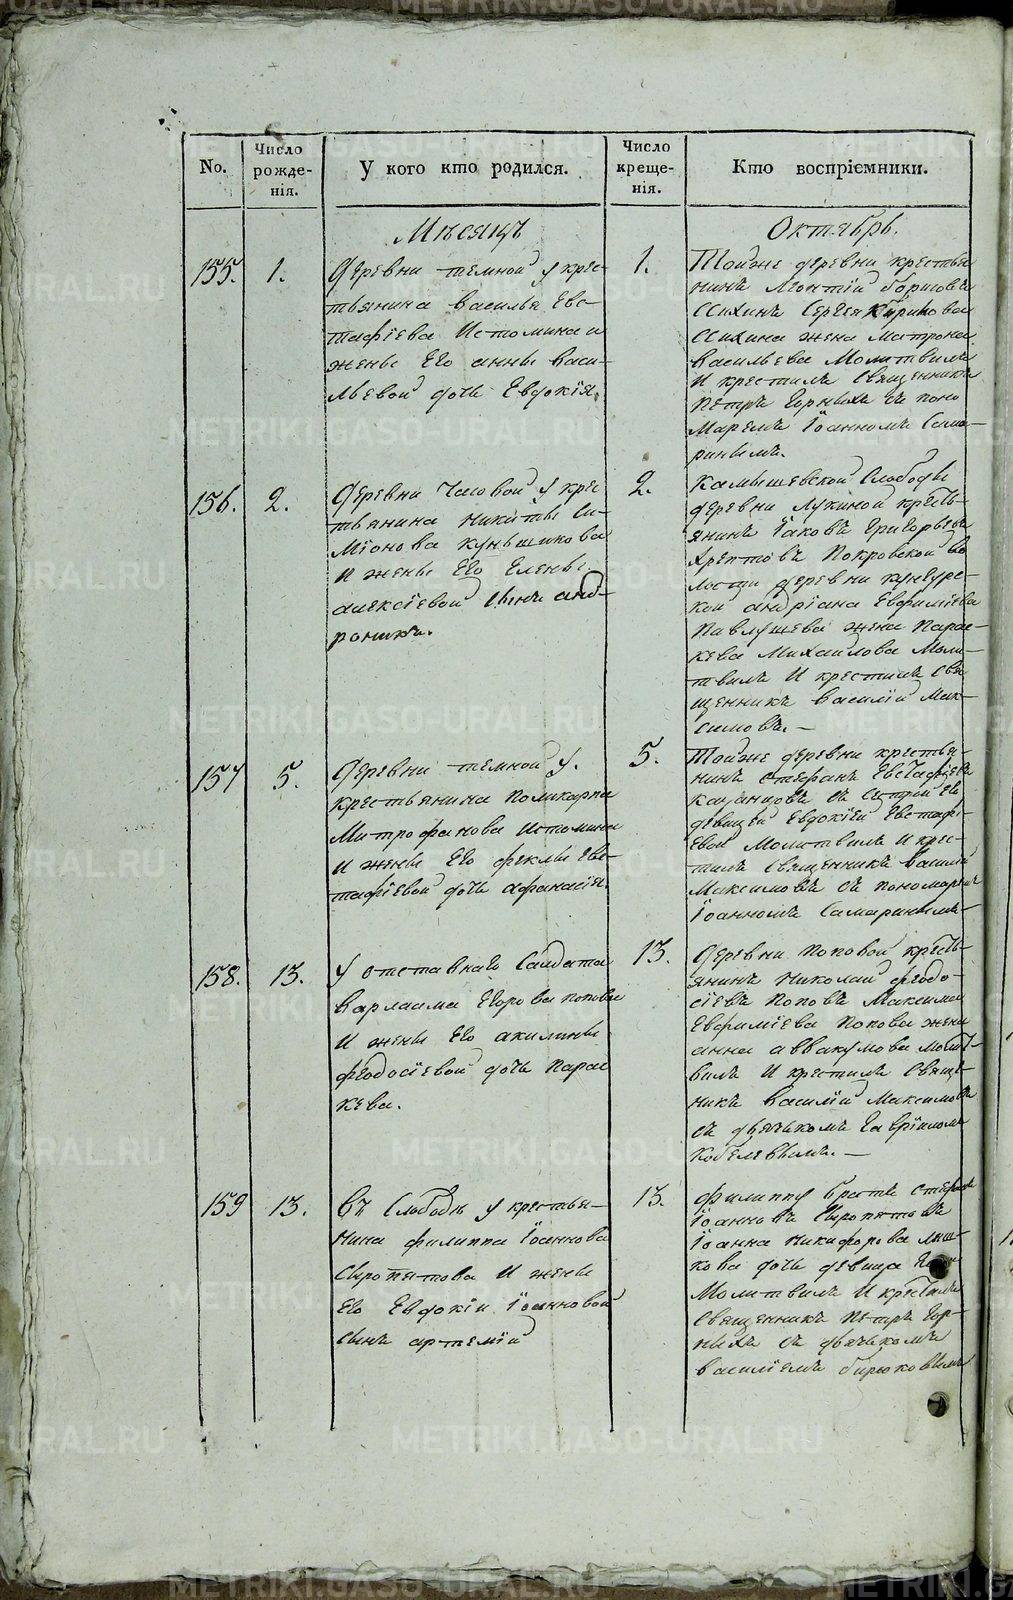 No.
Число рожде-нія.
У кого кто родился.
Число креще-нія.
Кто воспріемники.
Мѣсяцъ
Октябрь.
155.
1.
Деревни темной у крес-
тьянина Василья Евс-
тафіева Истомина и
жены Его анны Васи-
льевой дочь Евдокія.
1.
Тойже деревни крестья
нинъ Леонтій борисовъ
Сергея
жена Матрона
Васильева Молитвилъ
И крестилъ Священникъ
Петръ Горныхъ съ поно
Маремъ Іоанномъ Сама-
ринымъ.
156.
2.
Деревни Часовой у крес
тьянина никиты Си-
Міонова кунгшикова
И жены Его Елены
алексіевой Сынъ анд-
роникъ.
2.
Камышевской Слободы
деревни Лукиной кресть-
янинъ Іаковъ Григорьевъ
Покровской во
лости деревни кунгурс-
кой андріана Евфиміева
Павлушева жена Парас-
кева Михаилова Моли-
твилъ И крестилъ Свя
щенникъ Василій Мак-
симовъ.—
157
5.
Деревни темной у.
крестьянина поликарпа
Митрофанова Истомина
И жены Его феклы Евс-
тафіевой дочь афанасія.
5.
Тойже деревни крестья-
нинъ Стефанъ Евстафіевъ
казанцовъ съ Сестрой Ев
девицей Евдокіей Евстафі-
евой Молитвилъ И крес-
тилъ Священникъ Василій
Максимовъ съ пономаремъ
Іоанномъ Самаринымъ—
158.
13.
У отставнаго Салдата
Варлаама Егорова попова
И жены Его акилины
феодосіевой дочь Парас
кева.
13.
Деревни поповой кресть-
янинъ Николай феодо-
сіевъ поповъ Максима
Евфиміева попова жена
анна аввакумова молит-
вилъ И крестилъ Свяще-
никъ Василій Максимовъ
съ дьячькомъ Гавріиломъ
кобелевымъ.—
159
13.
Въ Слободѣ у крестья-
нина филиппа Іоаннова
Сыропятова И жены
Его Евдокіи Іоанновой
Сынъ артемій
13.
филиппу братъ Стефанъ
Іоанновъ Сыропятовъ
Іоанна никифорова
кова дочь девица
Молитвилъ И крестилъ
Священникъ Петръ Гор-
ныхъ съ дьячькомъ
Василіемъ бирюковымъ
METRIKI.GASO-URAL.RU